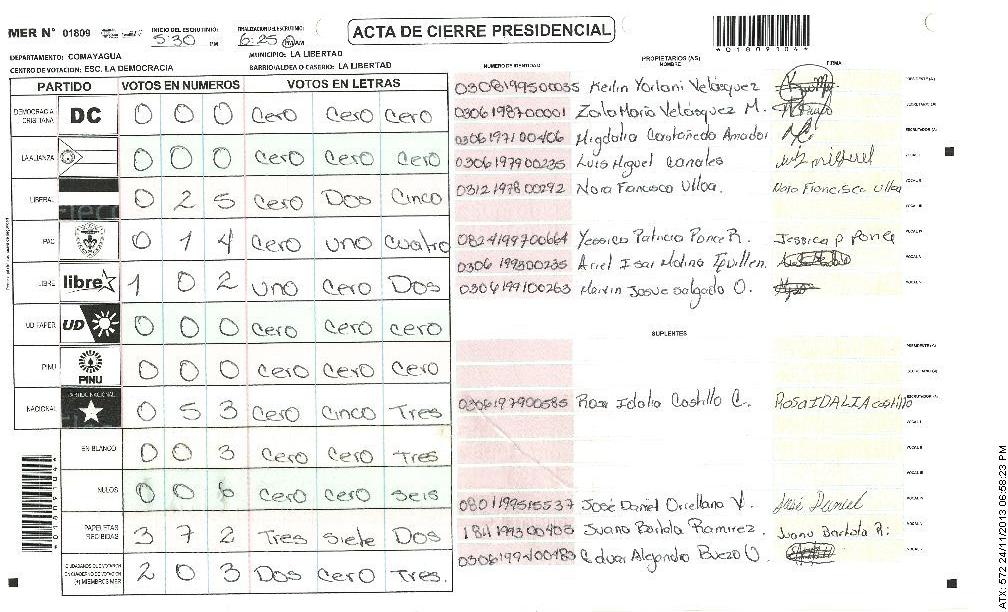 MER N° 01809 INICIO DEL ESCRUTINIO: 5:30 PM FINALIZACION DEL ESCRUTINIO: 6:25 PM/AM
ACTA DE CIERRE PRESIDENCIAL
*01809104*
DEPARTAMENTO: COMAYAGUA MUNICIPIO: LA LIBERTAD
CENTRO DE VOTACION: ESC. LA DEMOCRACIA BARRIO/ALDEA O CASERIO: LA LIBERTAD
PARTIDO VOTOS EN NUMEROS VOTOS EN LETRAS
DEMOCRACIA CRISTIANA DC 0 0 0 Cero Cero Cero
LA ALIANZA 0 0 0 Cero Cero Cero
LIBERAL 0 2 5 Cero Dos Cinco
PAC 0 1 4 Cero uno cuatro
LIBRE libre 1 0 2 uno Cero Dos
UD FAPER UD 0 0 0 Cero Cero cero
PINU PINU 0 0 0 Cero Cero Cero
NACIONAL PARTIDO NACIONAL 0 5 3 Cero Cinco Tres
EN BLANCO 0 0 3 Cero Cero Tres
NULOS 0 0 6 Cero cero seis
PAPELETAS RECIBIDAS 3 7 2 Tres siete Dos
2 0 3 Dos Cero Tres.
PROPIETARIOS (AS)
NUMERO DE IDENTIDAD NOMBRE FIRMA
0308199500035 Kerlin Yorlani Velásquez PRESIDENTE (A)
0306198700001 Zoila María Velásquez M. SECRETARIO (A)
0306197100406 Migdalia Castañeda Amador ESCRUTADOR (A)
0306197900235 Luis Miguel Canales Luiz miguel VOCAL I
0312197800292 Nora Francisca Ulloa. Nora Francisca Ulloa VOCAL II
VOCAL III
0824199700664 Yessica Patricia Ponce R. Jessica p ponce VOCAL IV
0306199300235 Ariel Isai Molina VOCAL V
0304199100263 Marvin Josue Salgado O.
SUPLENTES
PRESIDENTE (A)
SECRETARIO (A)
0306197900585 Rosa Idalia Castillo C. ROSA IDALIA castillo ESCRUTADOR (A)
VOCAL I
VOCAL II
VOCAL III
0801199515537 José Daniel Orellana V. José Daniel VOCAL IV
Juana Bartola Ramirez. Juana Bartola R. VOCAL V
Eduar Alejandro
*01809104*
ATX: 572 24/11/2013 06:58:23 PM